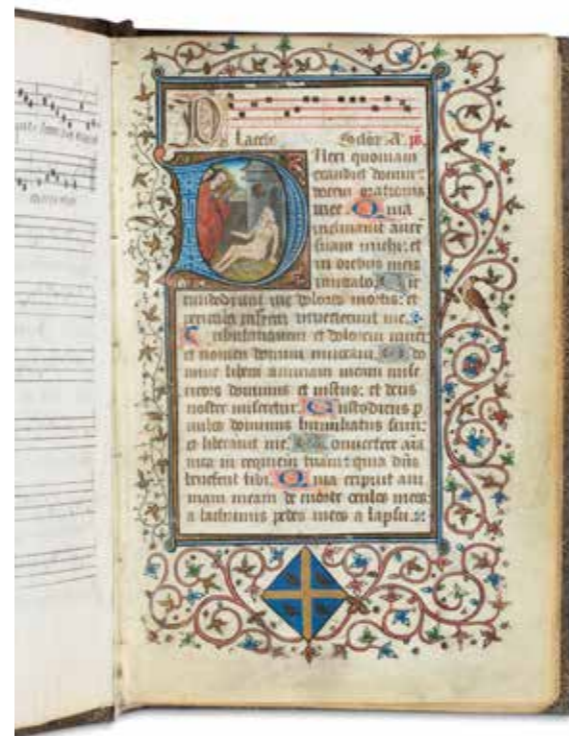 Placebo
DIlexi quoniam
exaudiet dominus
vocem orationis
mee. Quia
inclinavit aurē
suam michi: et
in diebus meis
invocabo. Cir
cumdederunt me dolores mortis: et
pericula inferni invenerunt me.
Tribulationem et dolorem inveni
et nomen domini invocavi. O do
mine libera animam meam mise
ricors dominus et iustus: et deus
noster miseretur. Custodiens p
vulos dominus humiliatus sum:
et liberavit me. Convertere aīa
mea in requiem tuam: quia dn̄s
benefecit tibi. Quia eripuit ani
mam meam de morte oculos meos
a lachrimis pedes meos a lapsu.